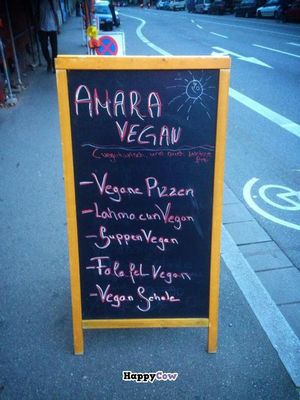 AMARA
VEGAN
- Vegane Pizzen
- Lahmacun Vegan
- Suppen Vegan
- Falafel Vegan
- Vegan Schale
HappyCow